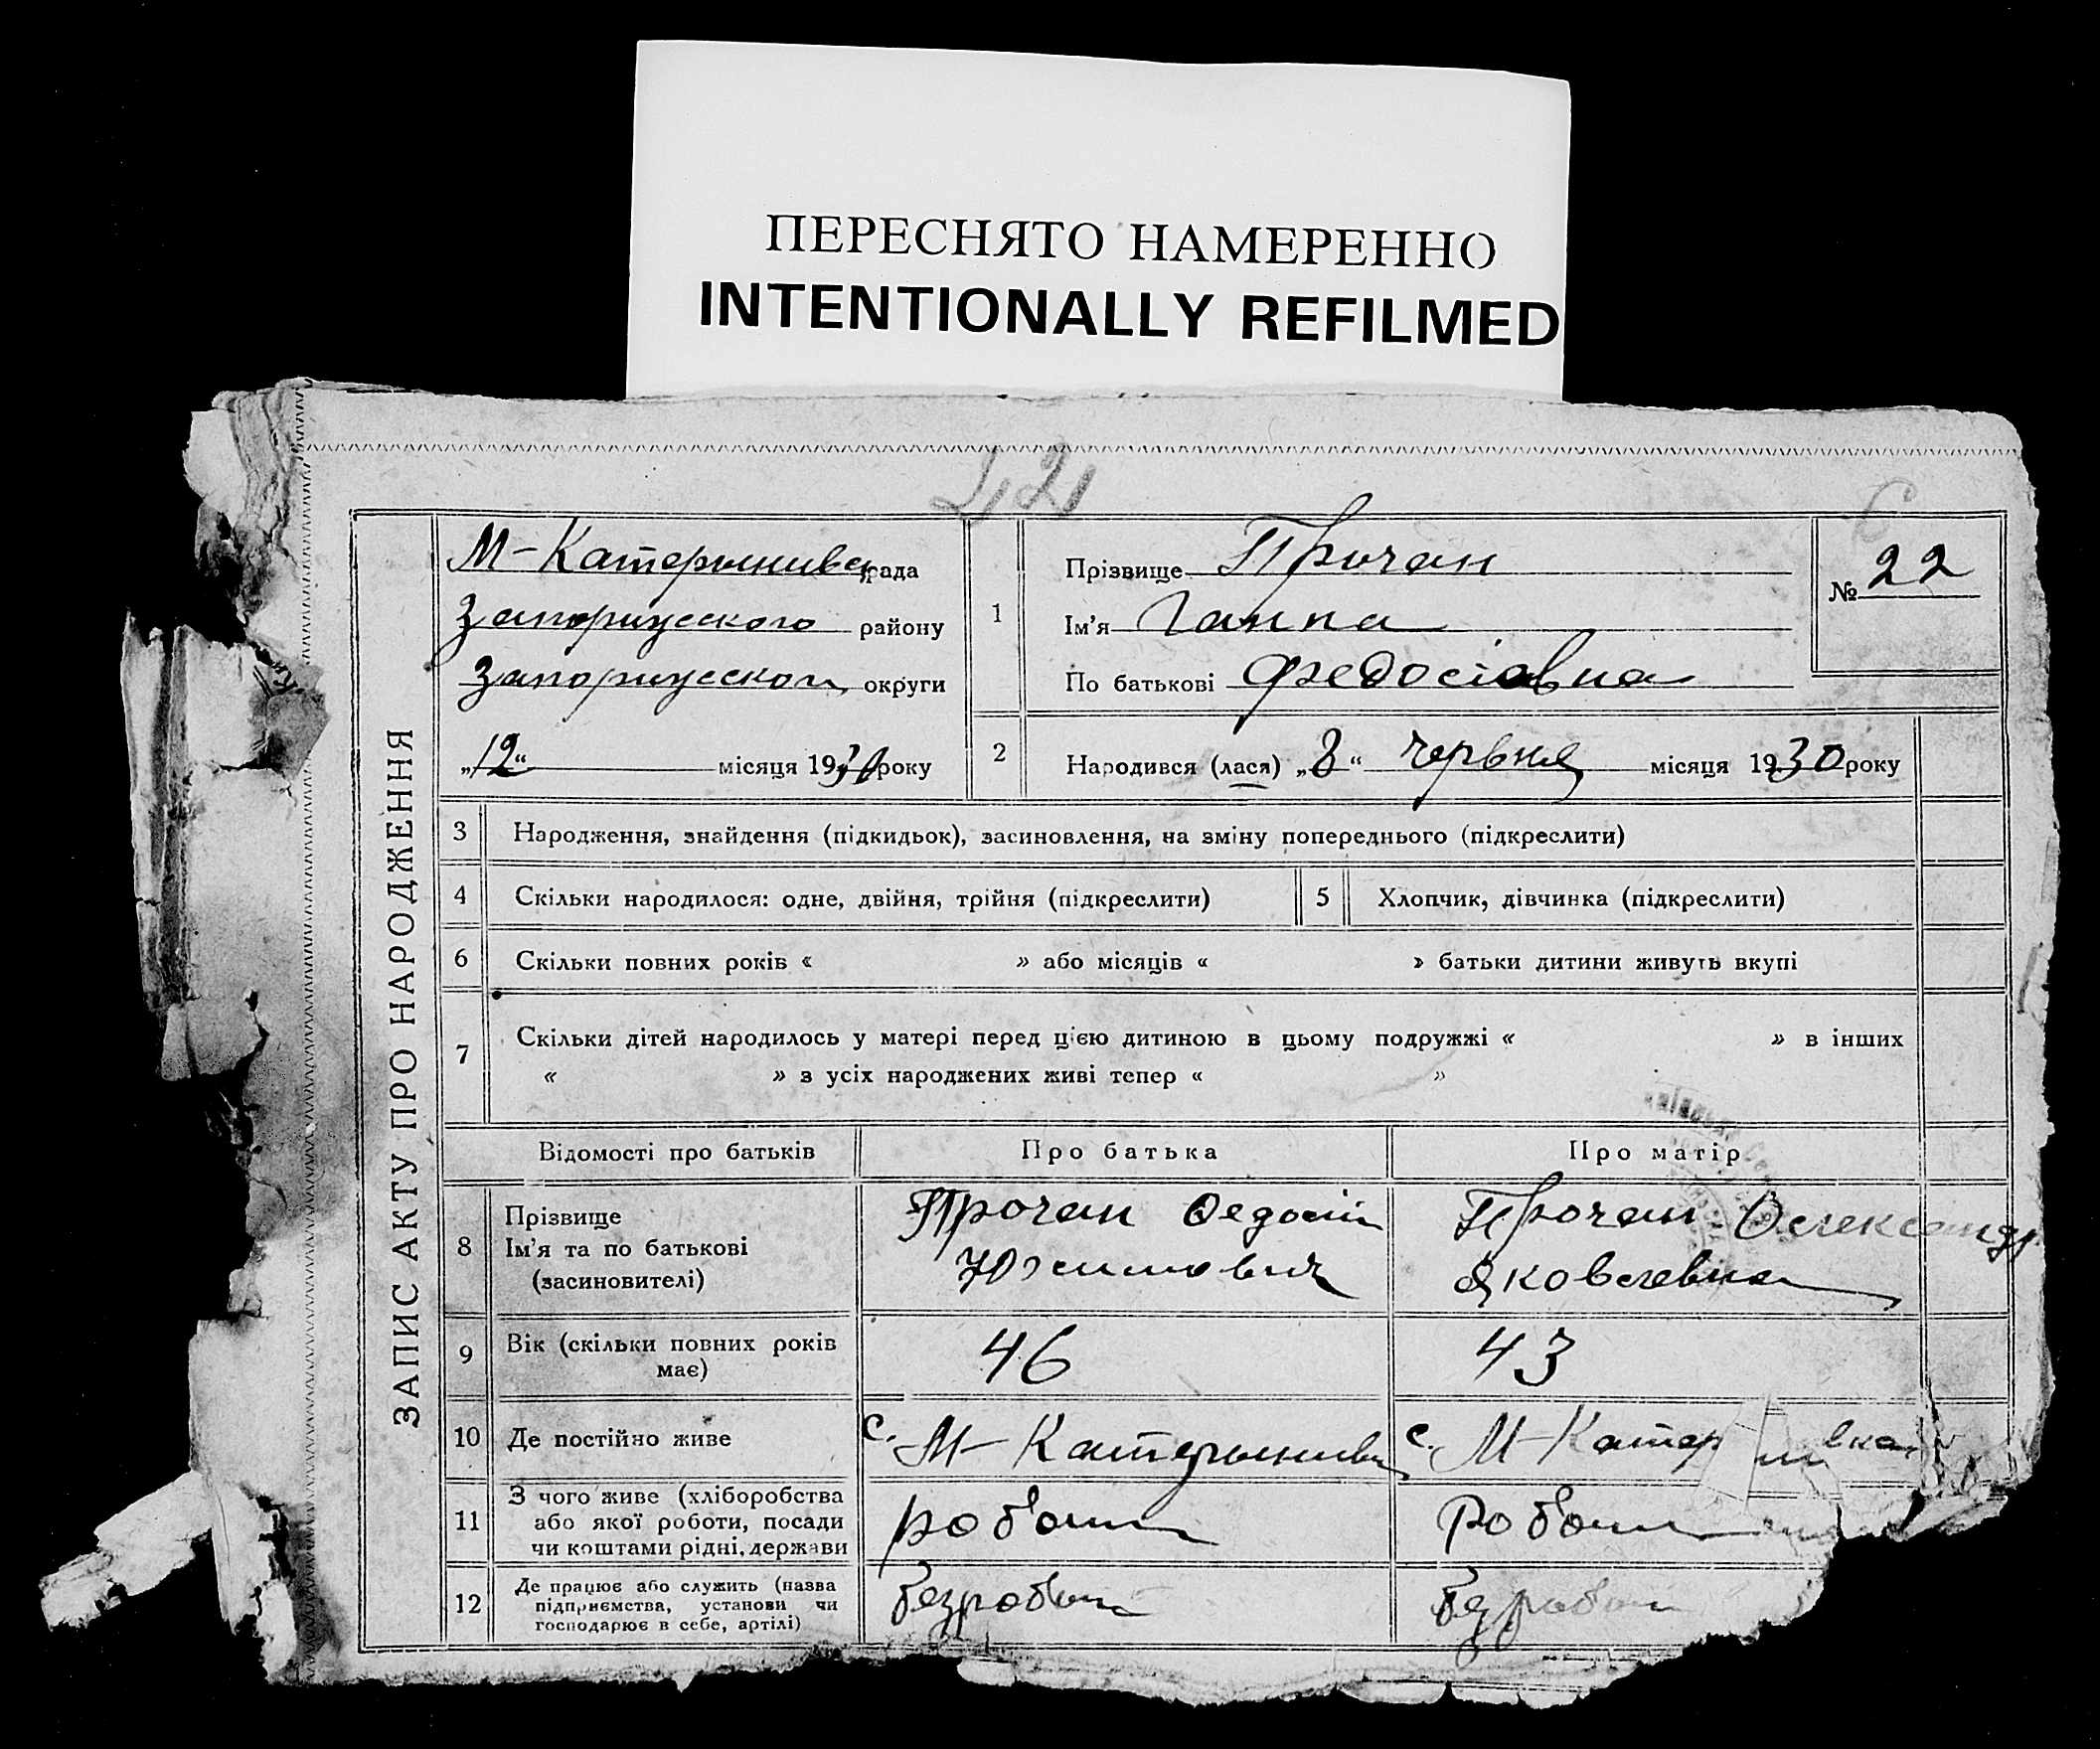 ПЕРЕСНЯТО НАМЕРЕННО
INTENTIONALLY REFILMED
ЗАПИС АКТУ ПРО НАРОДЖЕННЯ
М-Катеринивск рада
району
округи
„12“ місяця 1930 року
1
Прізвище Прочан
Ім'я Ганна
По батькові Федосіовна
№ 22
2
Народився (лася) „8“ червня місяця 1930 року
3 Народження, знайдення (підкидьок), засиновлення, на зміну попереднього (підкреслити)
4 Скільки народилося: одне, двійня, трійня (підкреслити) 5 Хлопчик, дівчинка (підкреслити)
6 Скільки повних років « » або місяців « » батьки дитини живуть вкупі
7 Скільки дітей народилось у матері перед цією дитиною в цьому подружжі « » в інших
« » з усіх народжених живі тепер « »
Відомості про батьків Про батька Про матір
8 Прізвище
Ім'я та по батькові
(засиновителі)
Прочан Федосій
Прочан Олександр
Яковлевна
9 Вік (скільки повних років
має)
46 43
10 Де постійно живе с. М-Катеринивк с. М-Катер вка
11 З чого живе (хліборобства
або якої роботи, посади
чи коштами рідні, держави
12 Де працює або служить (назва
підприємства, установи чи
господарює в себе, артілі)